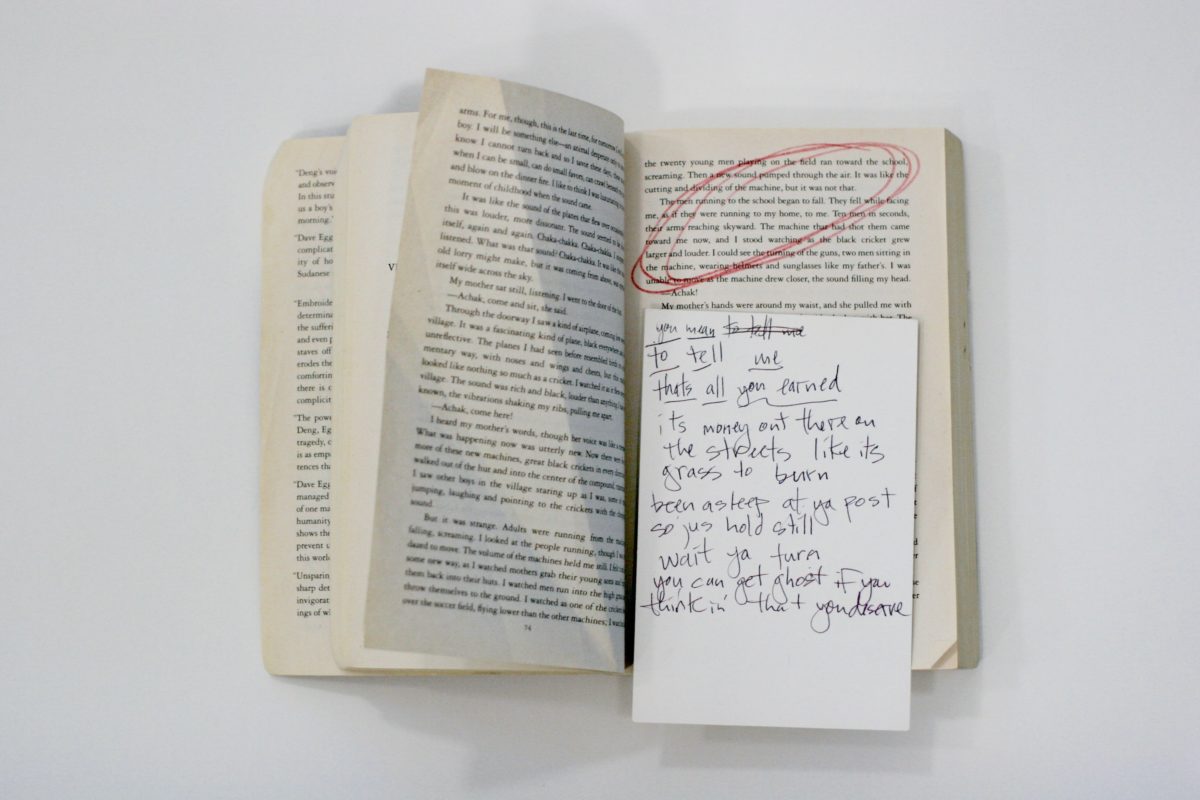 "Deng's
and observ
In this stu
us a boy's
morning."
"Dave Egg
complicat
ity of ho
Sudanese
"Embroide
determina
the sufferi
and even p
staves off
erodes the
comfortin
there is c
complicit
"The powe
Deng, Eg
tragedy, c
is as emp
tences tha
"Dave Egg
managed
of one ma
humanity
shows the
prevent u
this work
"Unsparin
sharp det
invigorat
ings of wi
arms. For me, though, this is the last time, for tomorrow I
boy. I will be something else—an animal desperate only to
know I cannot turn back and so I savor these days, these
when I can be small, can do small favors, can crawl beneath
and blow on the dinner fire. I like to think I was luxuriating
moment of childhood when the sound came.
It was like the sound of the planes that flew over occasion
this was louder, more dissonant. The sound seemed to be
itself, again and again. Chaka-chakka. Chaka-chakka. I
listened. What was that sound? Chaka-chakka. It was like the
old lorry might make, but it was coming from above, was
itself wide across the sky.
My mother sat still, listening. I went to the door of the hut.
—Achak, come and sit, she said.
Through the doorway I saw a kind of airplane, coming low
village. It was a fascinating kind of plane, black everywhere
unreflective. The planes I had seen before resembled birds in a
mentary way, with noses and wings and chests, but this
looked like nothing so much as a cricket. I watched it as it flew
village. The sound was rich and black, louder than anything I
known, the vibrations shaking my ribs, pulling me apart.
—Achak, come here!
I heard my mother's words, though her voice was like a
What was happening now was utterly new. Now there were
more of these new machines, great black crickets in every direction.
walked out of the hut and into the center of the compound,
I saw other boys in the village staring up as I was, some
jumping, laughing and pointing to the crickets with the
sound.
But it was strange. Adults were running from the
falling, screaming. I looked at the people running, though I
dazed to move. The volume of the machines held me still. I felt
some new way, as I watched mothers grab their young sons and
them back into their huts. I watched men run into the high grass
throw themselves to the ground. I watched as one of the crickets
over the soccer field, flying lower than the other machines; I watched
74
the twenty young men playing on the field ran toward the school,
screaming. Then a new sound pumped through the air. It was like the
cutting and dividing of the machine, but it was not that.
The men running to the school began to fall. They fell while facing
me, as if they were running to my home, to me. Ten men in seconds,
their arms reaching skyward. The machine that had shot them came
toward me now, and I stood watching as the black cricket grew
larger and louder. I could see the turning of the guns, two men sitting in
the machine, wearing helmets and sunglasses like my father's. I was
unable to move as the machine drew closer, the sound filling my head.
—Achak!
My mother's hands were around my waist, and she pulled me with
you mean to tell me
to tell me
thats all you earned
its money out there on
the streets like its
grass to burn
been asleep at ya post
so jus hold still
wait ya turn
you can get ghost if you
thinkin' that you deserve